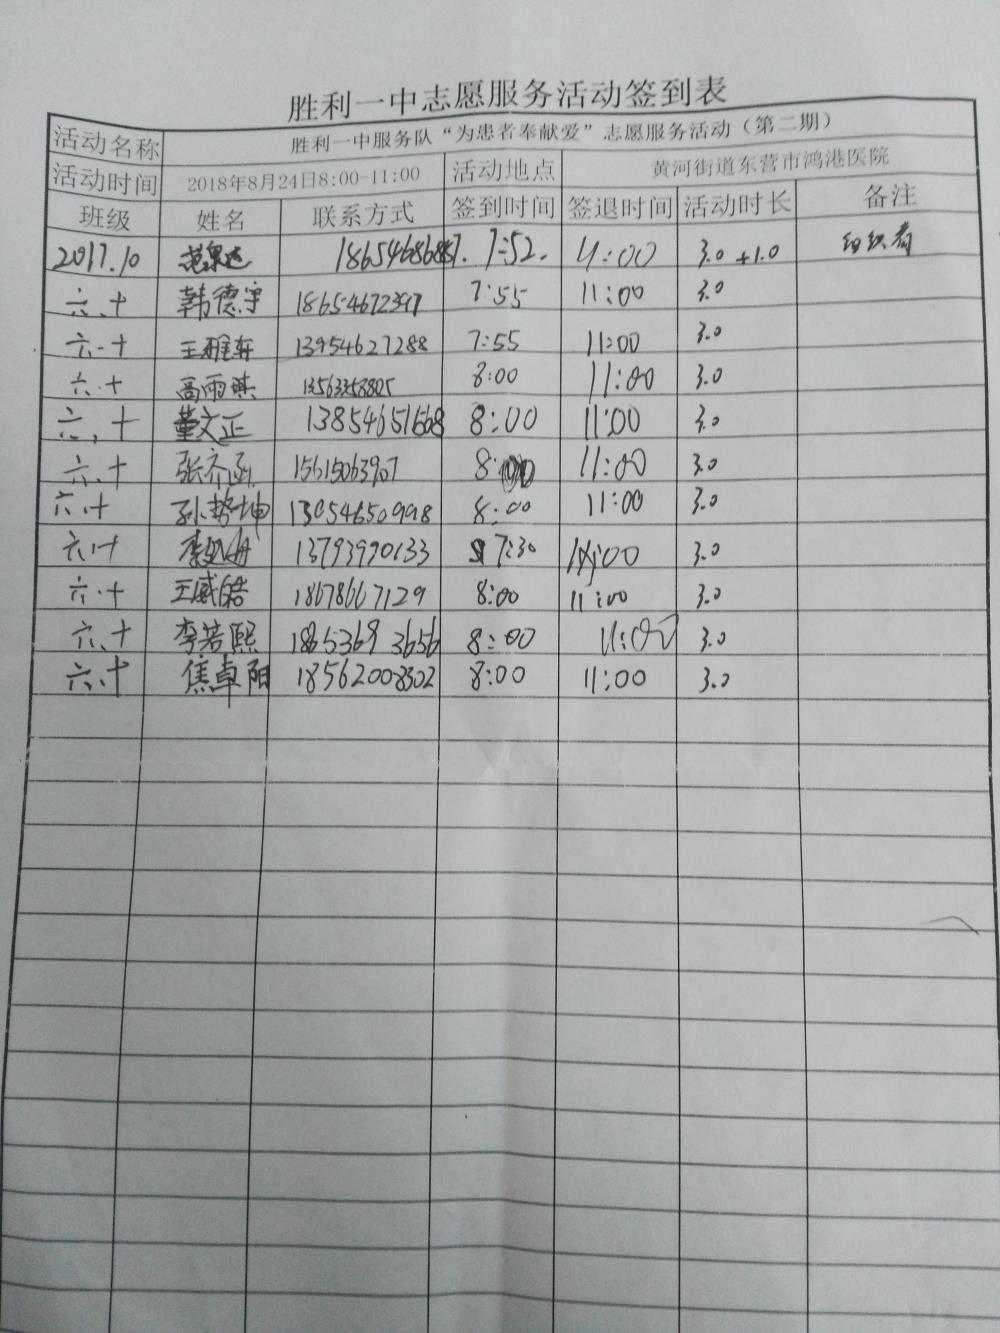 胜利一中志愿服务活动签到表
活动名称 胜利一中服务队“为患者奉献爱”志愿服务活动（第二期）
活动时间 2018年8月24日8:00-11:00 活动地点 黄河街道东营市鸿港医院
班级 姓名 联系方式 签到时间 签退时间 活动时长 备注
2017.10 7:52. 11:00 3.0 +1.0 组织者
六.十 韩德宇 7:55 11:00 3.0
六.十 王雅轩 13954627288 7:55 11:00 3.0
六.十 高雨琪 8:00 11:00 3.0
六.十 董文正 13854651668 8:00 11:00 3.0
六.十 张齐函 15615063907 8:00 11:00 3.0
六.十 孙势坤 13054650998 8:00 11:00 3.0
六.十 13793970133 7:30 11:00 3.0
六.十 王威皓 18678667129 8:00 11:00 3.0
六.十 李若熙 18653693656 8:00 11:00 3.0
六.十 焦卓阳 18562008302 8:00 11:00 3.0